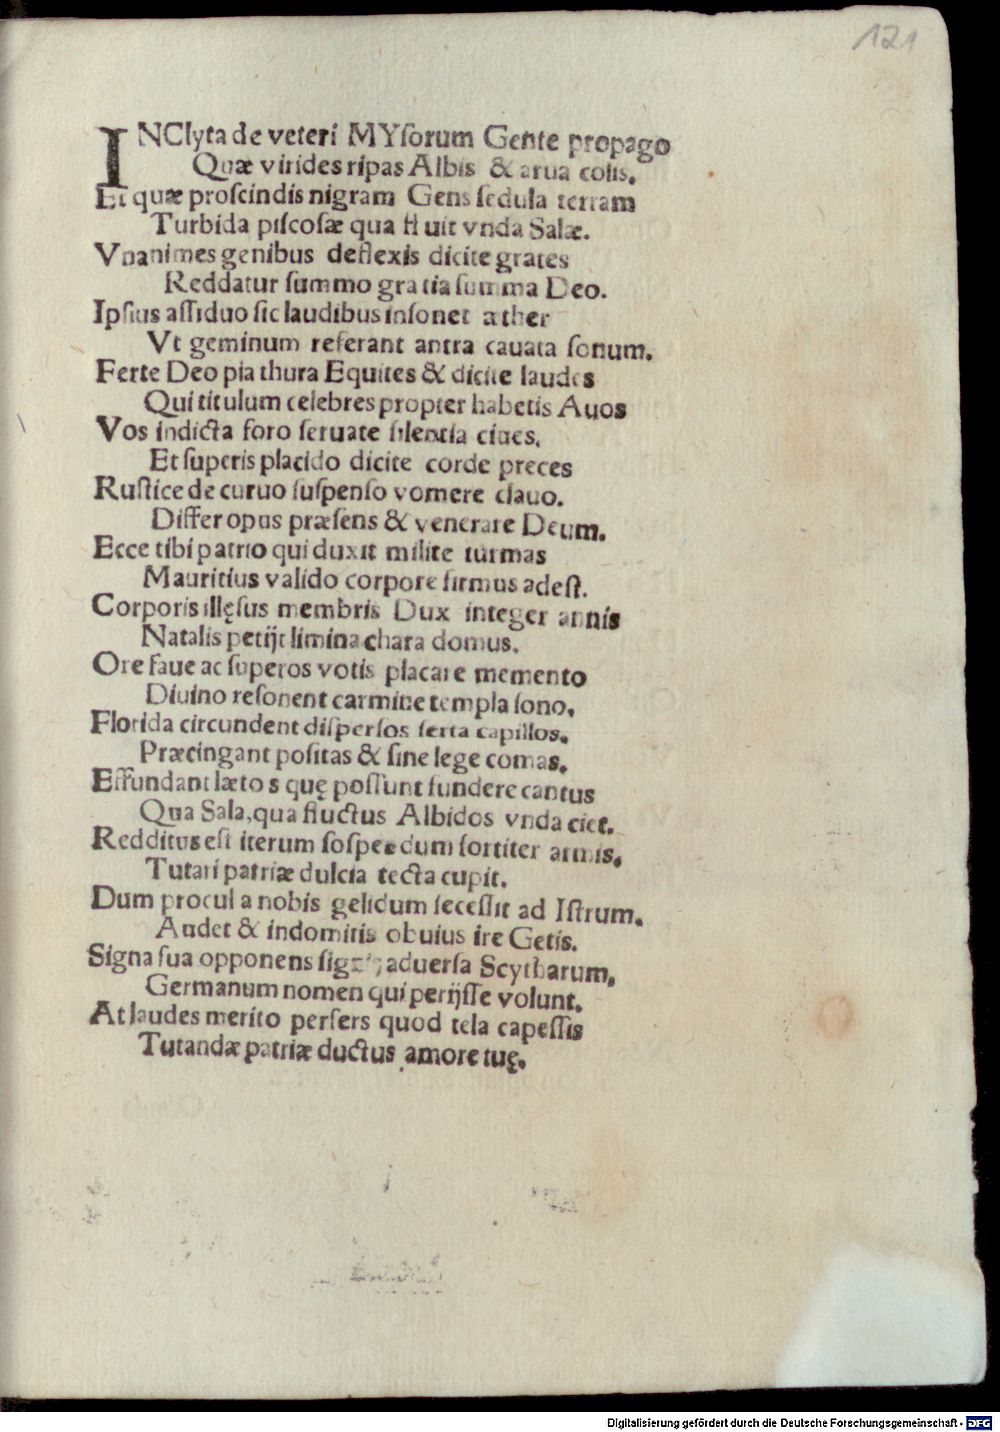 121
INClyta de veteri MYſorum Gente propago
Quæ virides ripas Albis & arua colis.
Et quæ proſcindis nigram Gens ſedula terram
Turbida piſcoſæ qua fluit vnda Salæ.
Vnanimes genibus deflexis dicite grates
Reddatur ſummo gratia ſumma Deo.
Ipſius aſſiduo ſic laudibus inſonet æther
Vt geminum referant antra cauata ſonum.
Ferte Deo pia thura Equites & dicite laudes
Qui titulum celebres propter habetis Auos
Vos indicta foro ſeruate ſilentia ciues.
Et ſuperis placido dicite corde preces
Ruſtice de curuo ſuſpenſo vomere clauo.
Differ opus præſens & venerare Deum.
Ecce tibi patrio qui duxit milite turmas
Mauritius valido corpore firmus adeſt.
Corporis illęſus membris Dux integer annis
Natalis petijt limina chara domus.
Ore faue ac ſuperos votis placare memento
Diuino reſonent carmine templa ſono.
Florida circundent diſperſos ſerta capillos.
Præcingant poſitas & ſine lege comas.
Effundant læto s quę poſſunt fundere cantus
Qua Sala, qua fluctus Albidos vnda ciet.
Redditus eſt iterum ſoſpes dum fortiter armis.
Tutari patriæ dulcia tecta cupit.
Dum procul a nobis gelidum ſeceſſit ad Iſtrum.
Audet & indomitis obuius ire Getis.
Signa ſua opponens aduerſa Scytharum.
Germanum nomen qui perijſſe volunt.
At laudes merito perfers quod tela capeſſis
Tutandæ patriæ ductus amore tuę.
Digitalisierung gefördert durch die Deutsche Forschungsgemeinschaft - DFG